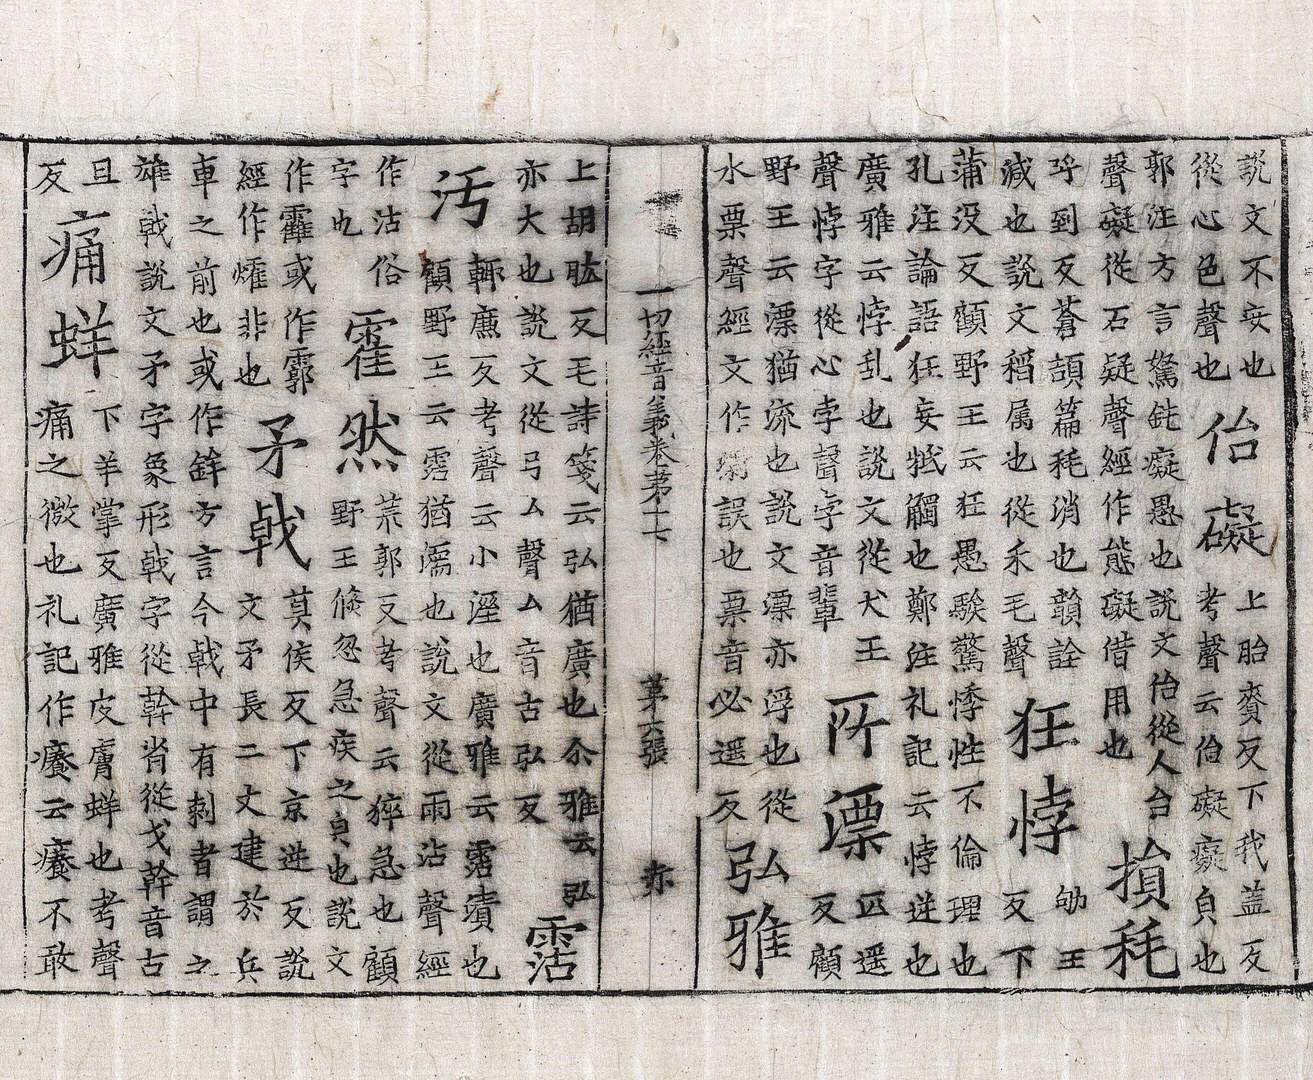 説文不安也
從心色聲也
佁礙
上胎賚反下我蓋反
考聲云佁礙癡皃也
郭注方言駑鈍癡愚也説文佁從人台
聲礙從石疑聲經作態礙借用也
損耗
呼到反蒼頡篇耗消也韻詮
減也説文稻属也從禾毛聲
狂悖
劬王
反下
蒲没反顧野王云狂愚騃驚悸性不倫理也
孔注論語狂妄牴觸也鄭注礼記云悖逆也
廣雅云悖乱也説文從犬王
聲悖字從心孛聲孛音輩
所漂
匹遥
反顧
野王云漂猶流也説文漂亦浮也從
水票聲經文作誤也票音必遥反
弘雅
一切經音義卷苐十七 苐六張 亦
上胡肱反毛詩箋云弘猶廣也尒雅云弘
亦大也説文從弓厶聲厶音古弘反
霑
汚
輙廉反考聲云小溼也廣雅云霑漬也
顧野王云霑猶濡也説文從雨沾聲經
作沽俗
字也
霍然
荒郭反考聲云猝急也顧
野王倏忽急疾之皃也説文
作靃或作霩
經作㸌非也
矛戟
莫侯反下京逆反説
文矛長二丈建於兵
車之前也或作鉾方言今戟中有刺者謂之
雄戟説文矛字象形戟字從幹省從戈幹音古
旦
反
痛蛘
下羊掌反廣雅皮膚蛘也考聲
痛之微也礼記作癢云癢不敢